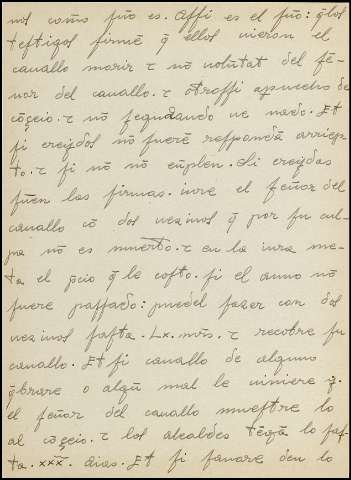 nos como ſuõ es. Aſſi es el ſuõ: q̃ los
teſtigos firmẽ q̃ ellos uieron el
cauallo morir ⁊ nõ uolũtat del ſẽ-
nor del cauallo. ⁊ otroſſi a
cõceio. ⁊ nõ ſeg
ſi creẏdos nõ fuerẽ reſpondã arriep-
to. ⁊ ſi nõ nõ cũplen. Si creẏdas
fuẽn las firmas. iure el ſeñor del
cauallo cõ dos uezinos q̃ por ſu cul-
pa nõ es muerto. ⁊ en la iura me-
ta el p̃cio q̃ le coſto. ſi el anno nõ
fuere paſſado: puedel fazer con dos
uezinos faſta .Lx. mr̃s. ⁊ recobre ſu
cauallo. Et ſi cauallo de alguno
q̃brare o algũ mal le uiniere q̃.
el ſeñor del cauallo mueſtre lo
al cõceio. ⁊ los alcaldes tẽgã lo faſ-
ta .xxx. dias. Et ſi ſanare den lo